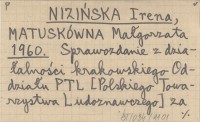 P
NIZIŃSKA Irena,
MATUSKÓWNA Małgorzata
1960. Sprawozdanie z dzia-
łalności krakowskiego Od-
działu PTL [Polskiego Towa-
rzystwa Ludoznawczego] za